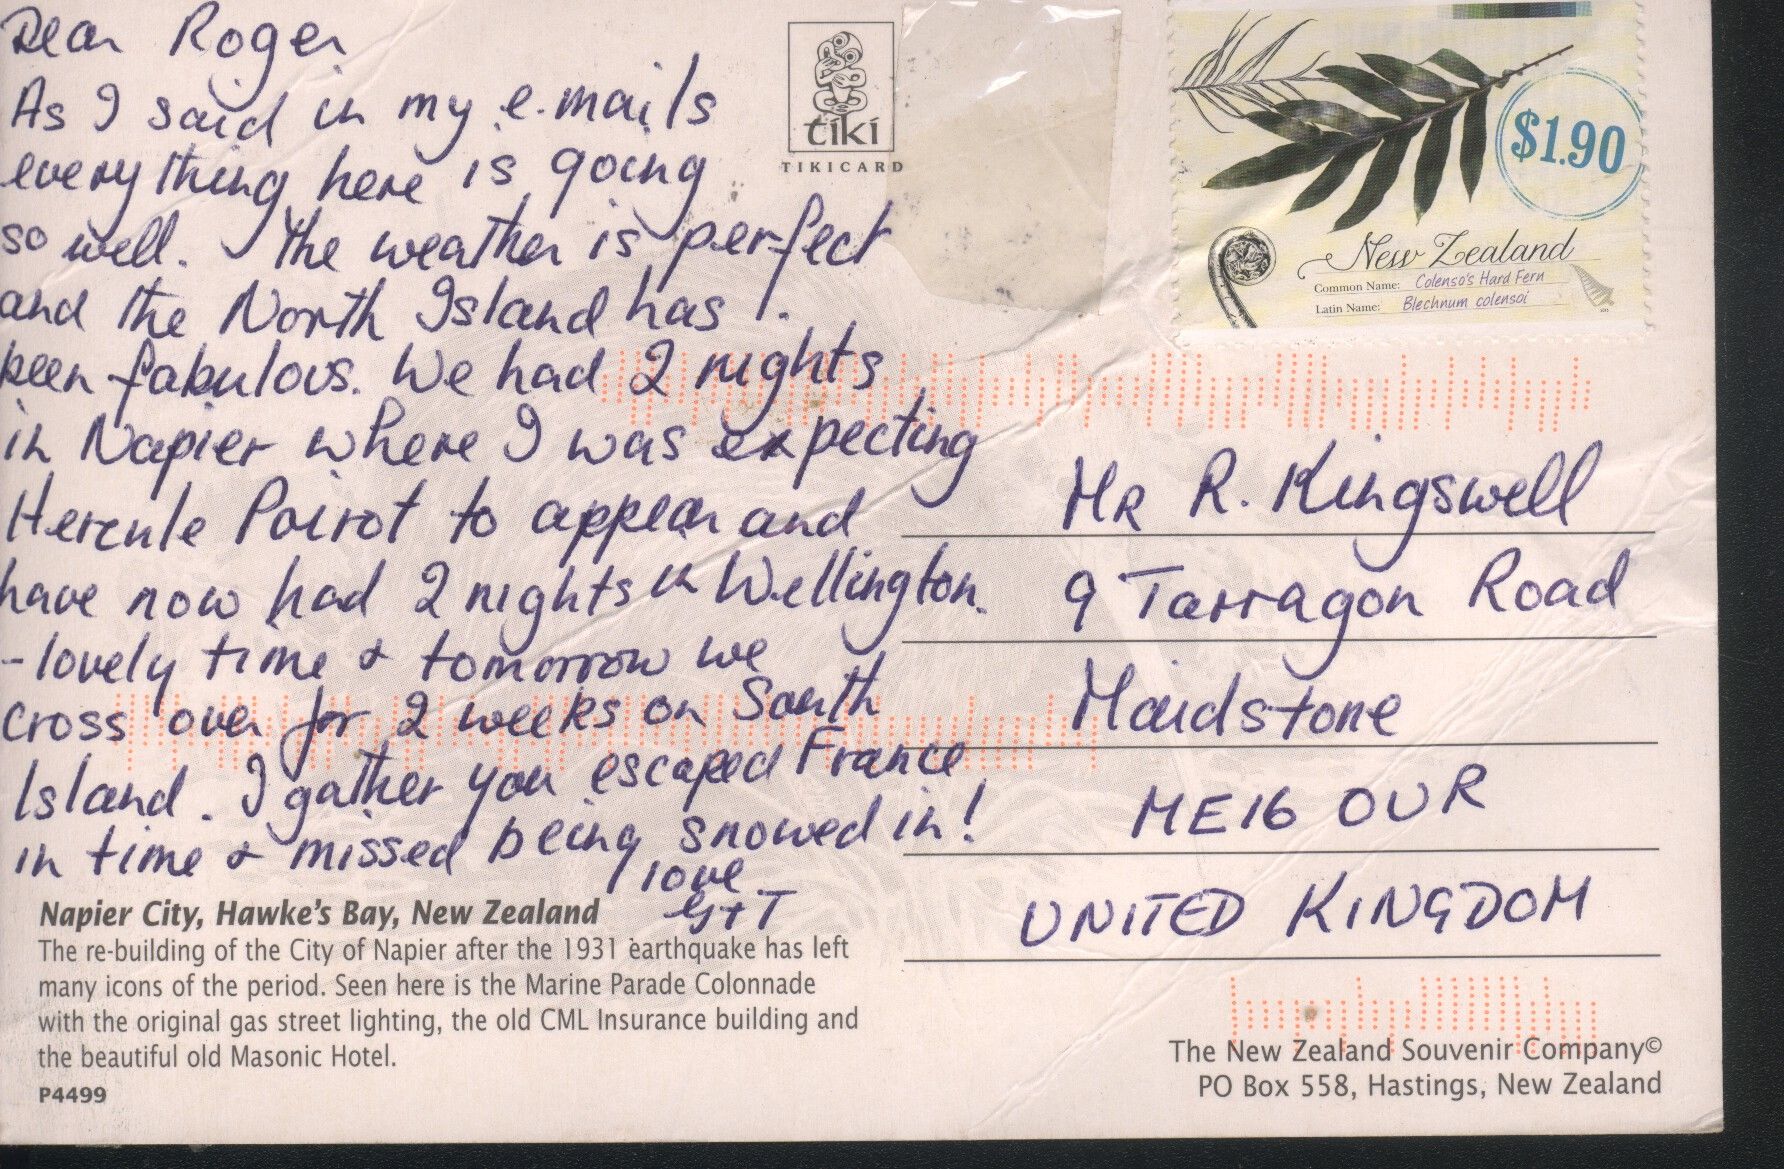 Dear Roger
As I said in my e.mails
everything here is going
so well. The weather is perfect
and the North Island has
been fabulous. We had 2 nights
in Napier where I was expecting
Hercule Poirot to appear and
have now had 2 nights in Wellington.
- lovely time & tomorrow we
cross over for 2 weeks on South
Island. I gather you escaped France
in time & missed being snowed in!
love
G+T
Napier City, Hawke's Bay, New Zealand
The re-building of the City of Napier after the 1931 earthquake has left
many icons of the period. Seen here is the Marine Parade Colonnade
with the original gas street lighting, the old CML Insurance building and
the beautiful old Masonic Hotel.
P4499
tiki
TIKICARD
$1.90
New Zealand
Common Name: Colenso's Hard Fern
Latin Name: Blechnum colensoi
MR R. Kingswell
9 Tarragon Road
Maidstone
ME16 OUR
UNITED KINGDOM
The New Zealand Souvenir Company©
PO Box 558, Hastings, New Zealand